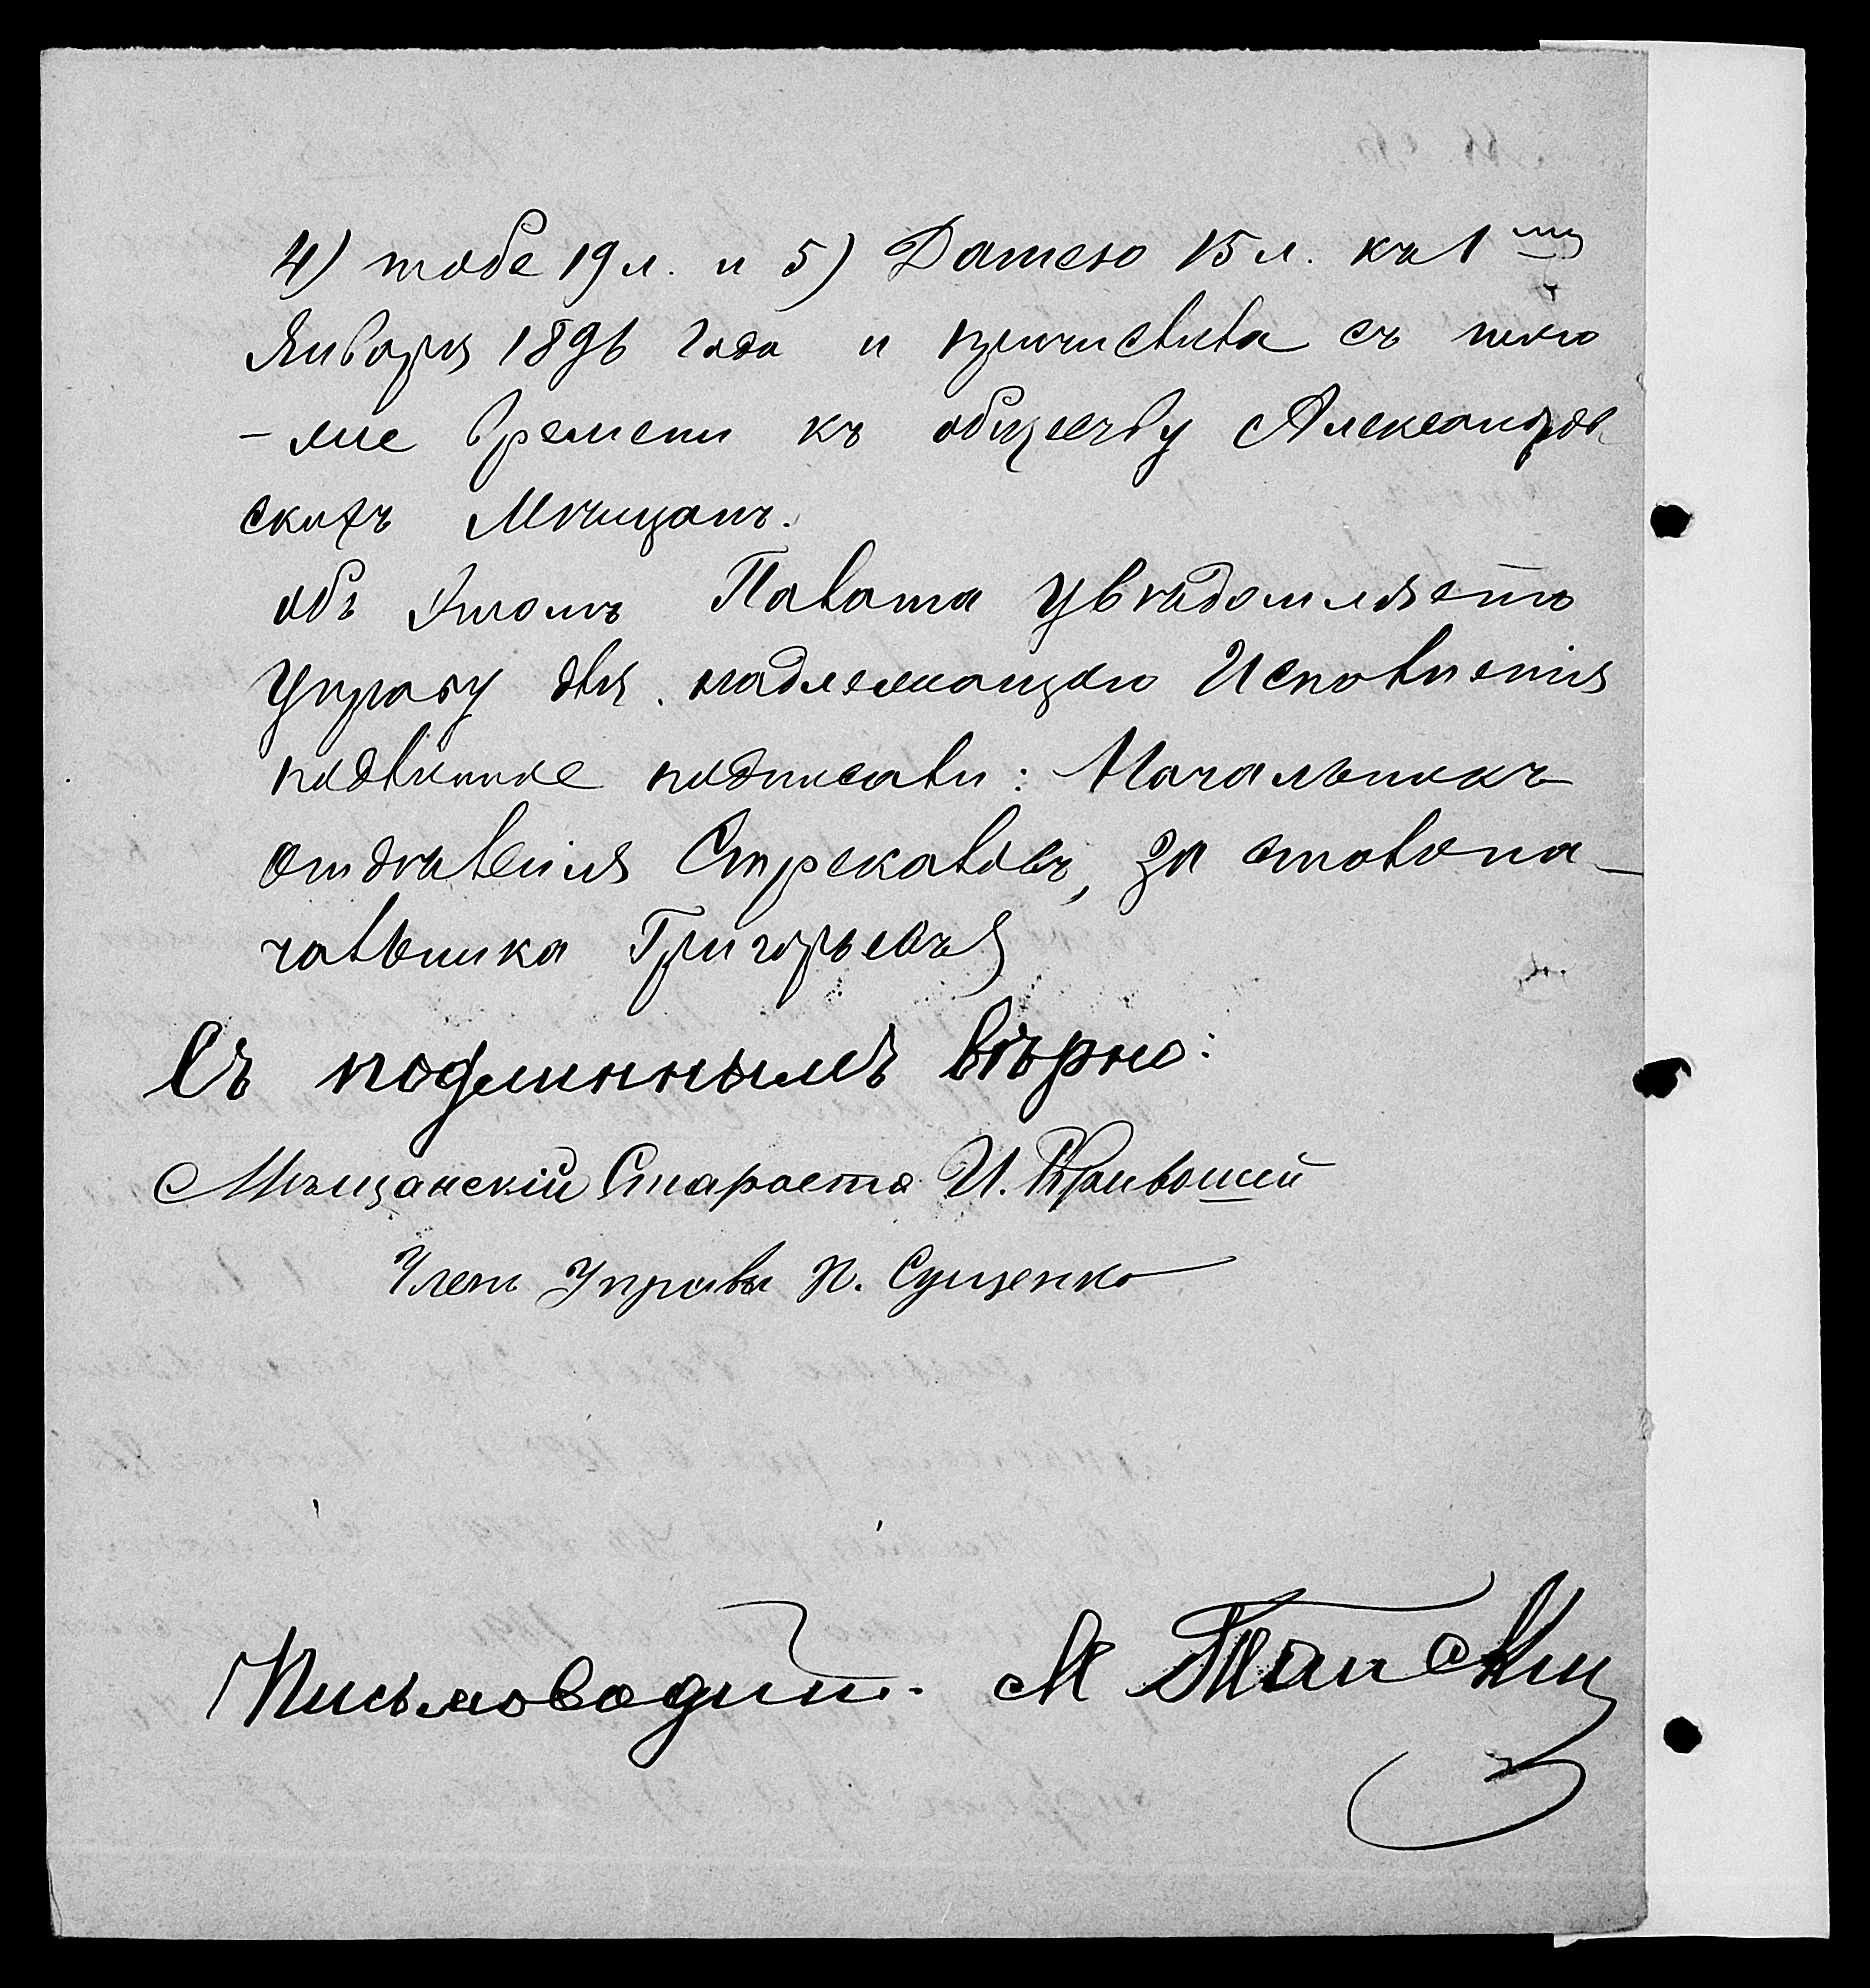 4) тобе 19 л. и 5) Датею 15 л. къ 1му
Января 1896 года и причислила съ того
-же времени къ обществу Александров
скихъ Мѣщанъ.
объ этомъ Палата увѣдомляетъ
Управу для надлежащаго Исполненія
подлинное подписали: Начальникъ
отдѣленія Стрекаловъ, за столона-
чальника Григорьевъ
Съ подлиннымъ вѣрно:
Мѣщанскій Староста И. Кривошей
Членъ Управы П. Сущенко
Письмоводит. М